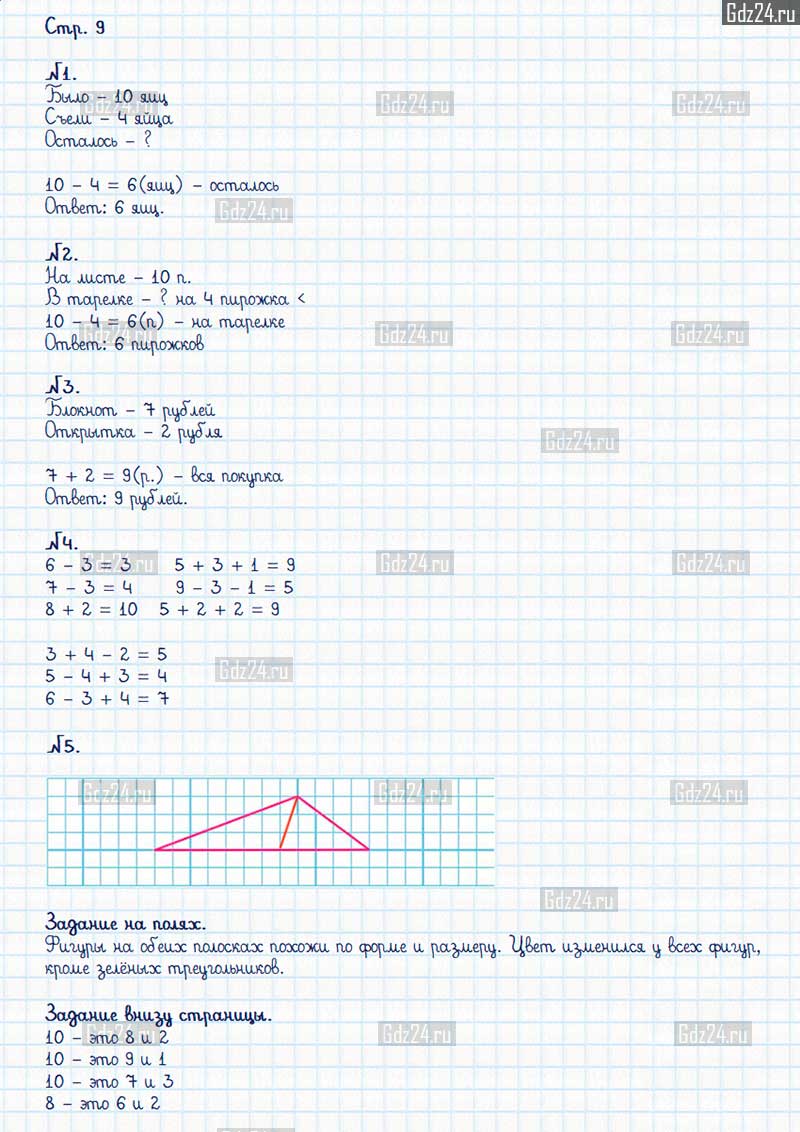 Gdz24.ru
Стр. 9
№1.
Было – 10 яиц
Съели – 4 яйца
Осталось – ?
10 – 4 = 6(яиц) – осталось
Ответ: 6 яиц.
№2.
На листе – 10 п.
В тарелке – ? на 4 пирожка <
10 – 4 = 6(п) – на тарелке
Ответ: 6 пирожков
№3.
Блокнот – 7 рублей
Открытка – 2 рубля
7 + 2 = 9(р.) – вся покупка
Ответ: 9 рублей.
№4.
6 – 3 = 3 5 + 3 + 1 = 9
7 – 3 = 4 9 – 3 – 1 = 5
8 + 2 = 10 5 + 2 + 2 = 9
3 + 4 – 2 = 5
5 – 4 + 3 = 4
6 – 3 + 4 = 7
№5.
Задание на полях.
Фигуры на обеих полосках похожи по форме и размеру. Цвет изменился у всех фигур,
кроме зелёных треугольников.
Задание внизу страницы.
10 – это 8 и 2
10 – это 9 и 1
10 – это 7 и 3
8 – это 6 и 2